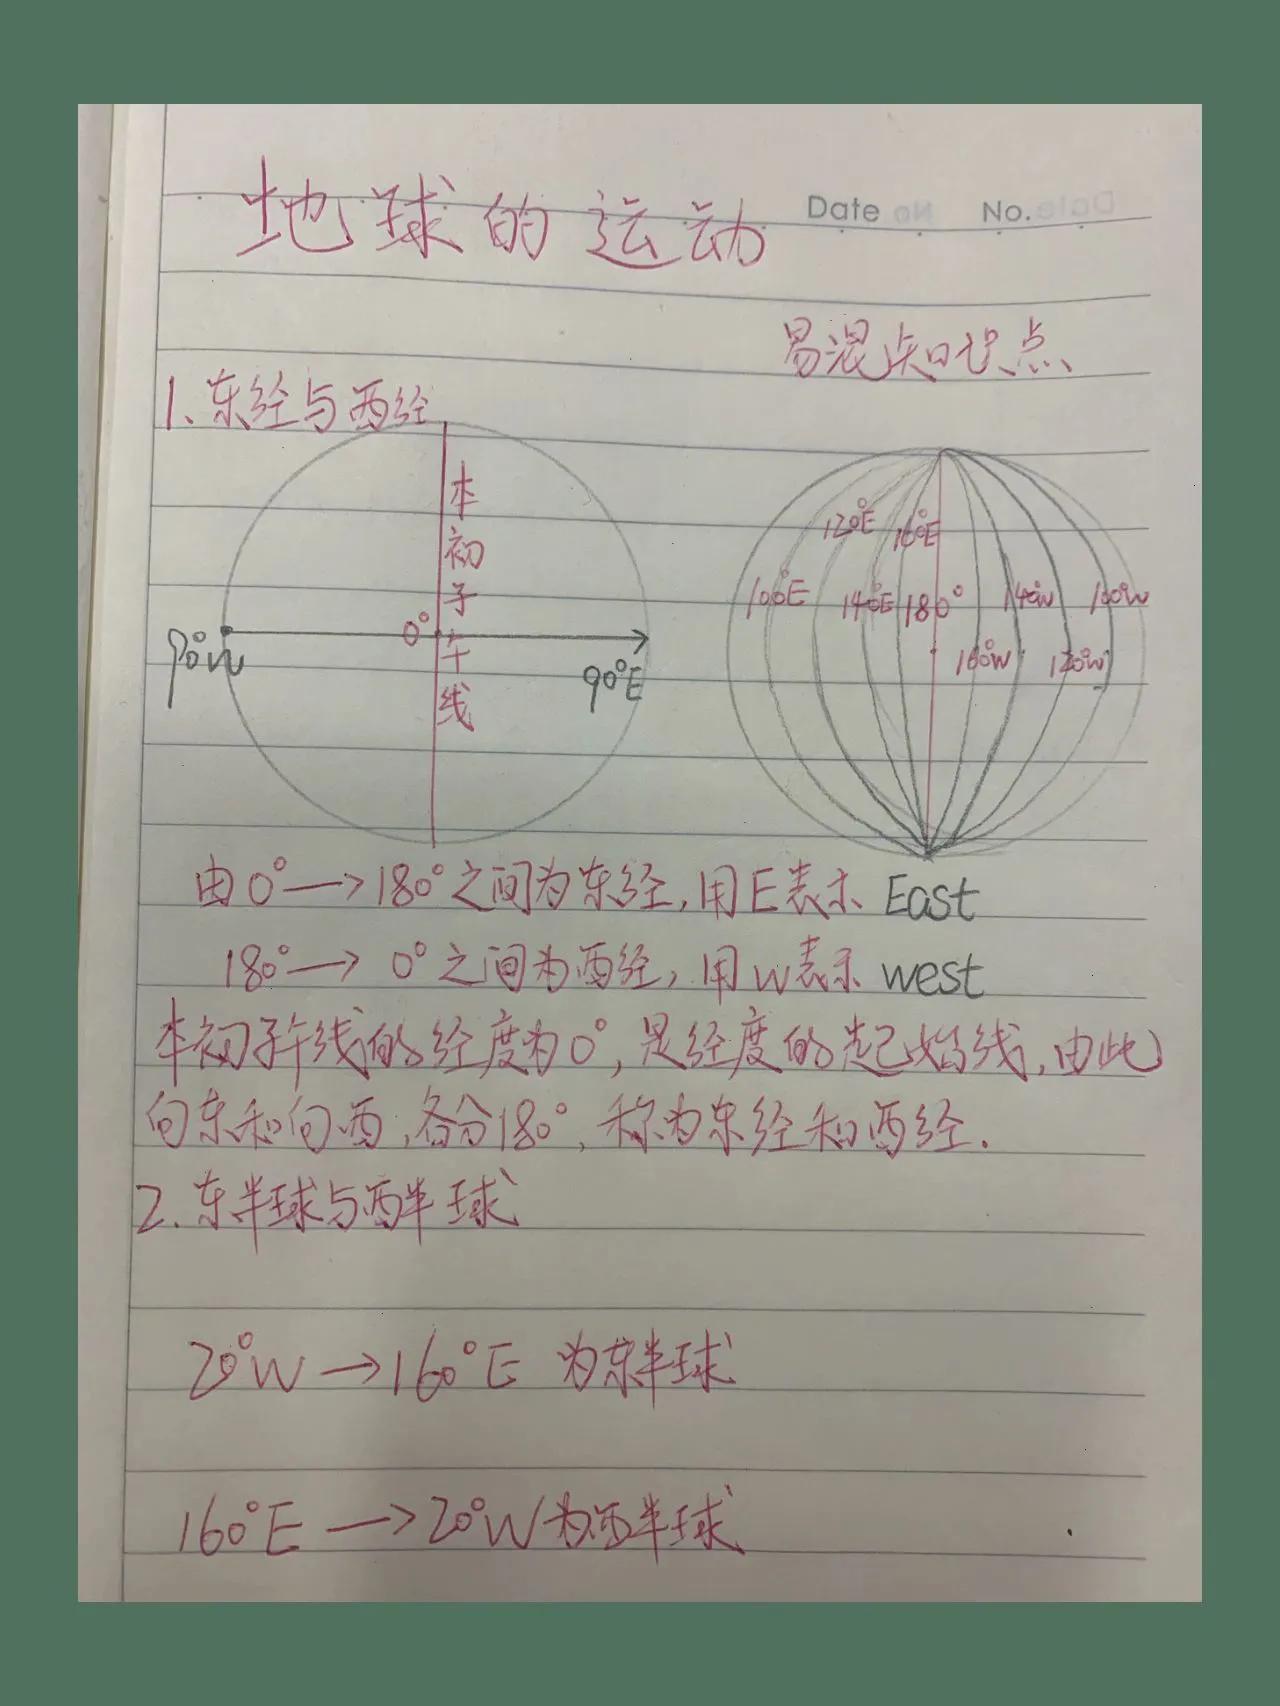 地球的运动
Date No.
易混知识点
1、东经与西经
本初子午线
0°
90°W
90°E
120°E 160°E
100°E 140°E 180° 140°W 100°W
160°W 120°W
由0°→180°之间为东经,用E表示 East
180°→0°之间为西经,用W表示 west
本初子午线的经度为0°,是经度的起始线,由此
向东和向西,各分180°,称为东经和西经.
2.东半球与西半球
20°W→160°E 为东半球
160°E→20°W为西半球